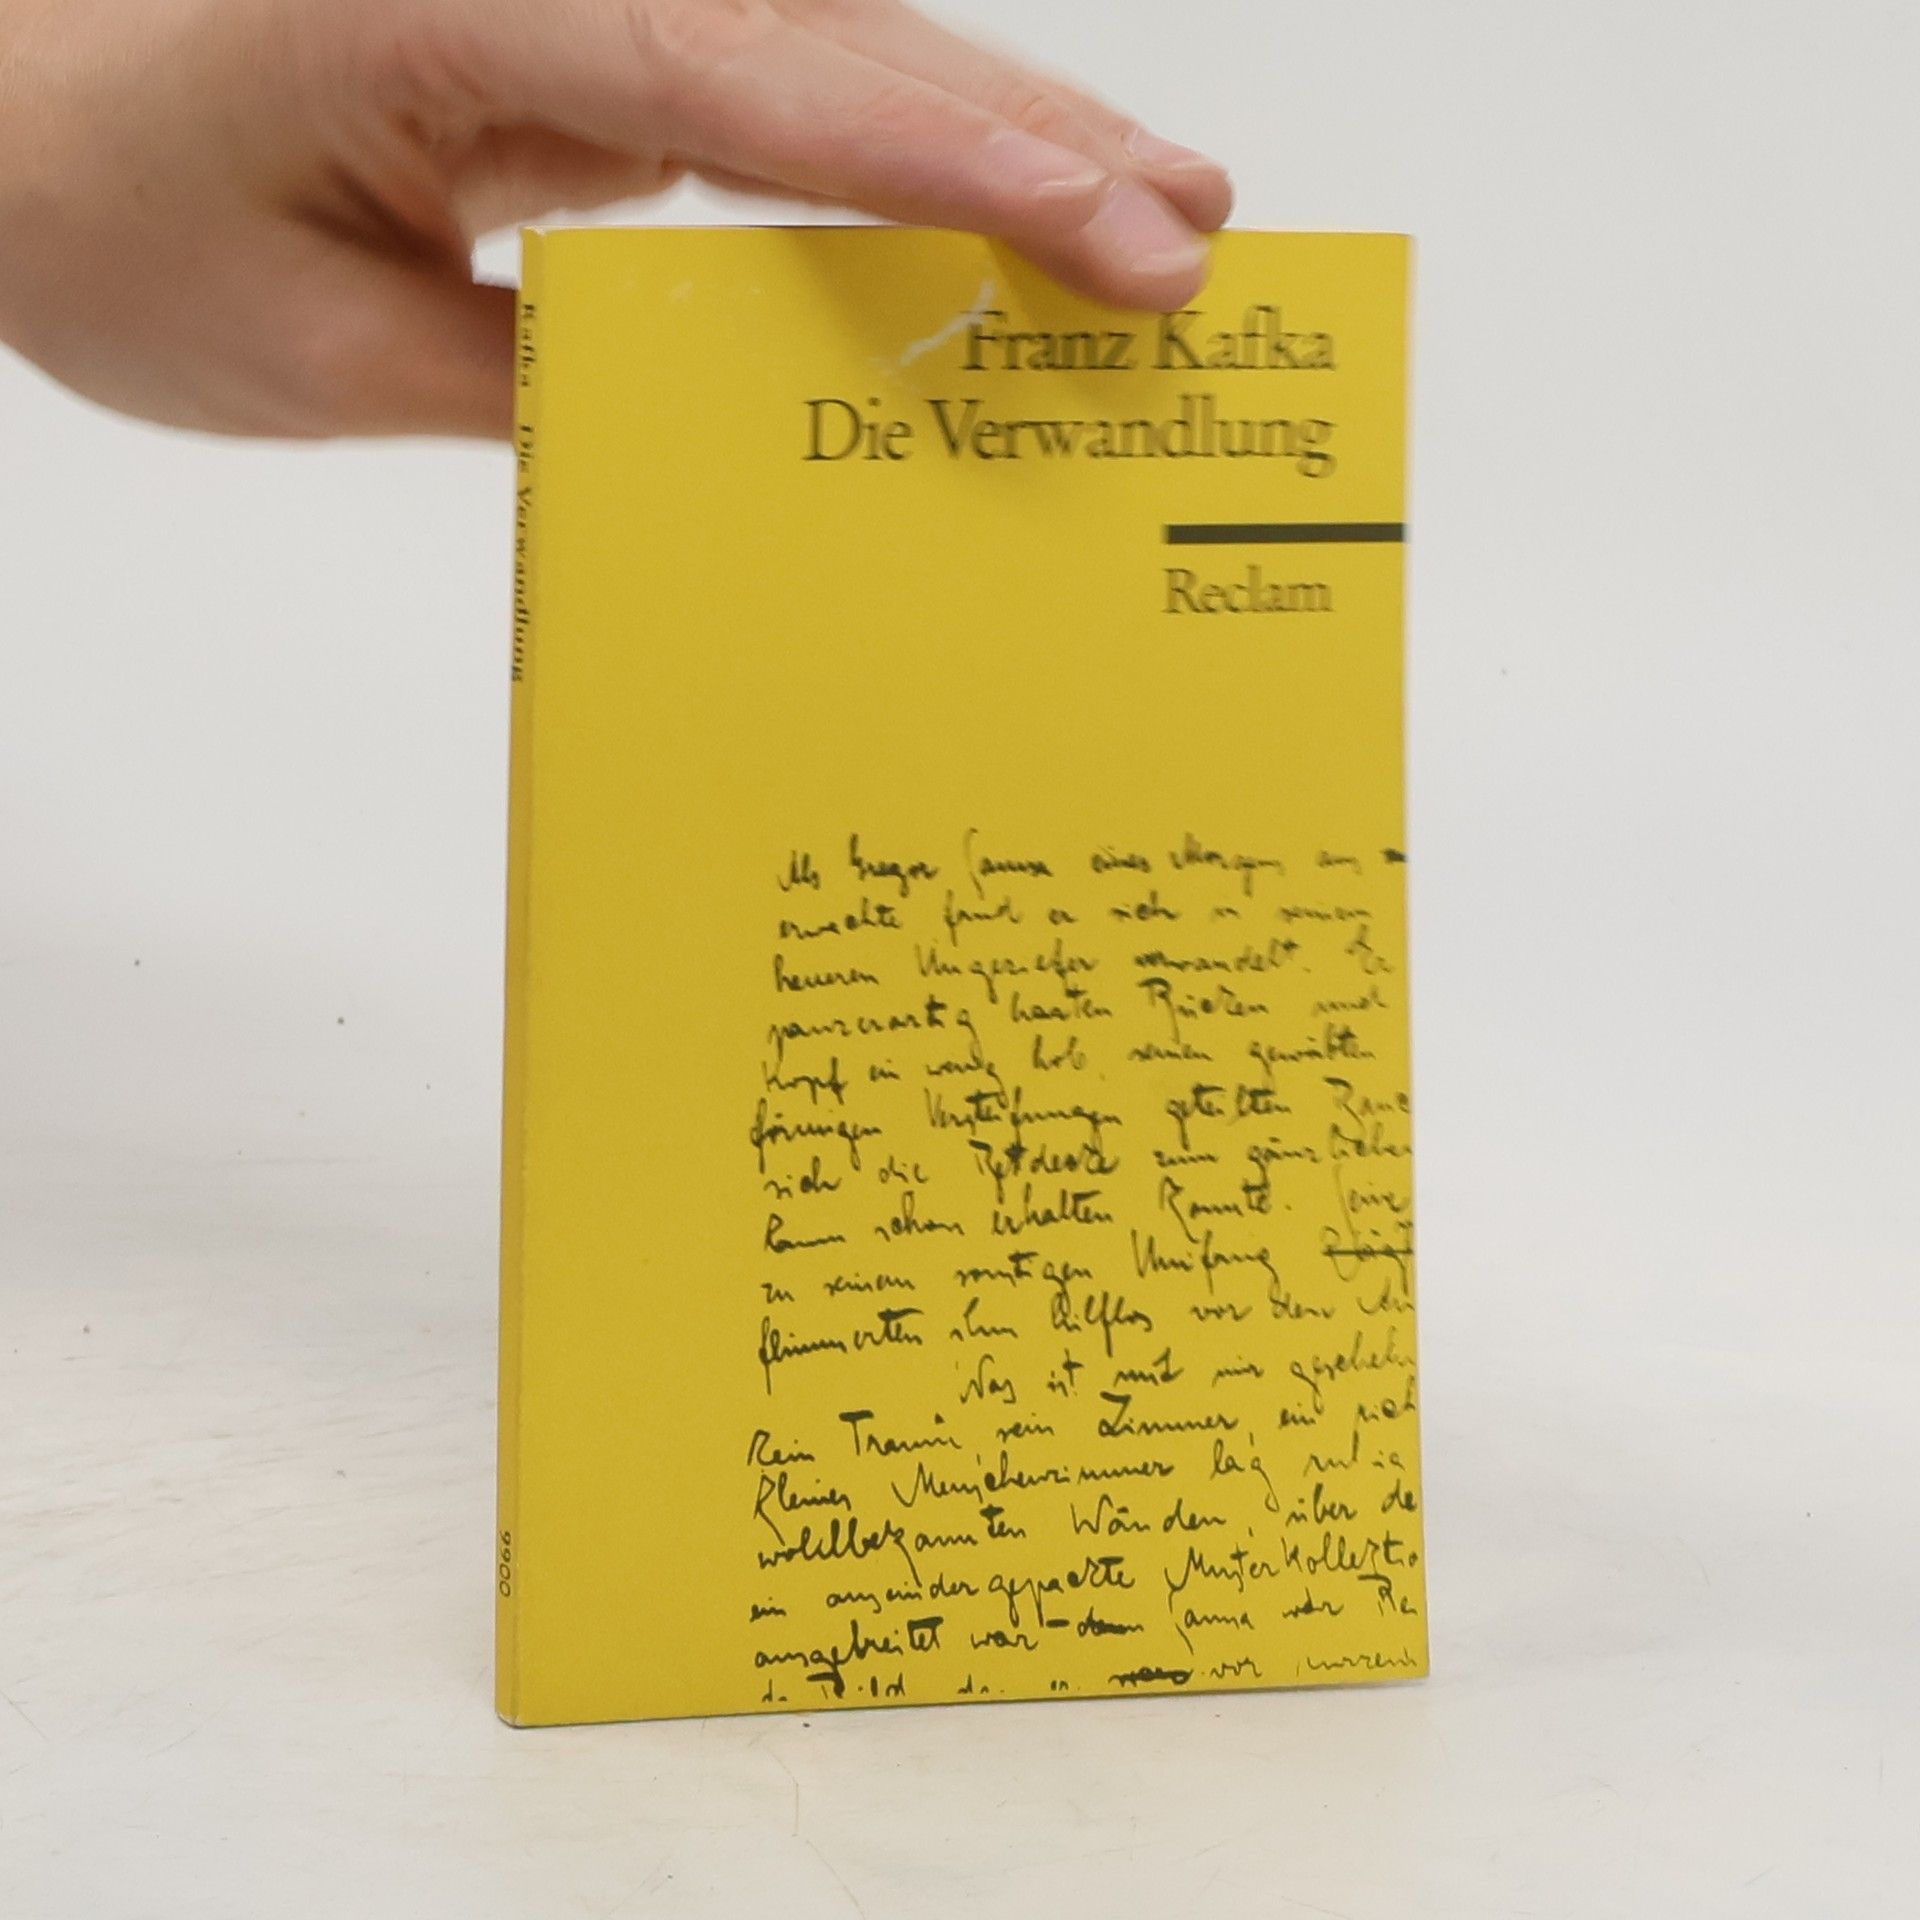 Franz Kafka
Die Verwandlung
Reclam
Kafka Die Verwandlung
9900
Als Gregor Samsa eines Morgens aus
erwachte fand er sich in seinem
heueren Ungeziefer verwandelt. Er
panzerartig harten Rücken und
Kopf ein wenig hob, seinen gewölbten
förmigen Versteifungen geteilten
sich die Bettdecke zum gänzlichen
kaum schon erhalten konnte. Seine
zu seinem sonstigen Umfang
flimmerten ihm hilflos vor den
Was ist mit mir geschehn
Kein Traum, sein Zimmer, ein rich
kleines Menschenzimmer lag ruhig
wohlbekannten Wänden, über de
ein auseinandergepackte Musterkollektio
ausgebreitet war – denn Samsa war Rei
vor kurzem